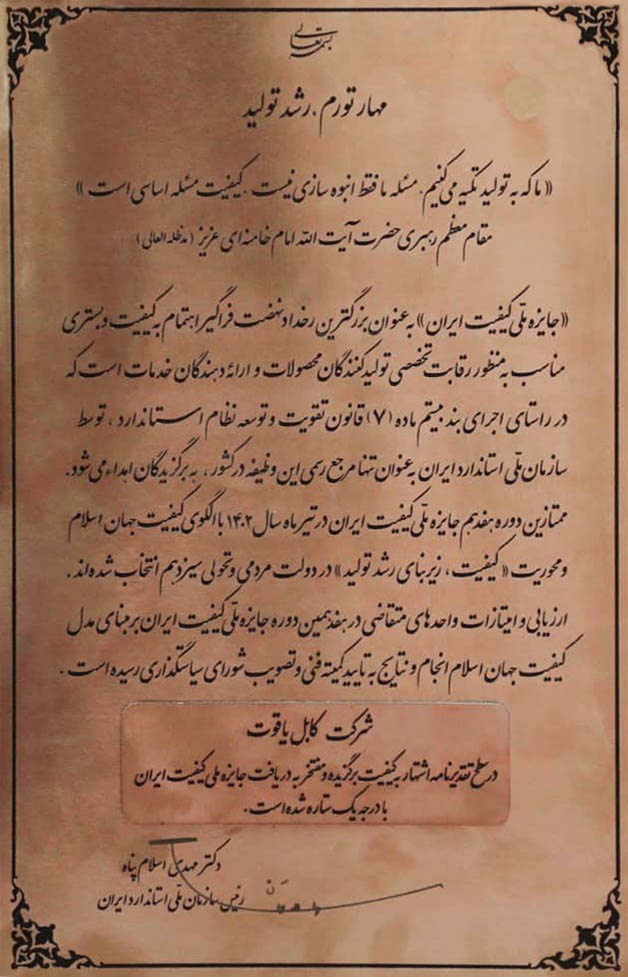 بسمه تعالی
مهار تورم، رشد تولید
« ما که به تولید تکیه می‌کنیم. مسئله ما فقط انبوه سازی نیست. کیفیت مسئله اساسی است »
مقام معظم رهبری حضرت آیت الله امام خامنه ای عزیز (مدظله العالی)
«جایزه ملّی کیفیت ایران» به عنوان بزرگترین رخداد نهضت فراگیر اهتمام به کیفیت و بستری
مناسب به منظور رقابت تخصصی تولیدکنندگان محصولات و ارائه دهندگان خدمات است که
در راستای اجرای بند بیستم ماده (۷) قانون تقویت و توسعه نظام استاندارد، توسط
سازمان ملّی استاندارد ایران به عنوان تنها مرجع رسمی این وظیفه در کشور، به برگزیدگان اهداء می شود.
ممتازین دوره هفدهم جایزه ملّی کیفیت ایران در تیر ماه سال ۱۴۰۲ با الگوی کیفیت جهان اسلام
و محوریت « کیفیت، زیربنای رشد تولید » در دولت مردمی و تحولی سیزدهم انتخاب شده اند.
ارزیابی و امتیازات واحدهای متقاضی در هفدهمین دوره جایزه ملّی کیفیت ایران بر مبنای مدل
کیفیت جهان اسلام انجام و نتایج به تایید کمیته فنی و تصویب شورای سیاستگذاری رسیده است.
شرکت کابل یاقوت
در سطح تقدیرنامه اشتهار به کیفیت برگزیده و مفتخر به دریافت جایزه ملی کیفیت ایران
با درجه یک ستاره شده است.
دکتر مهدی اسلام پناه
رئیس سازمان ملّی استاندارد ایران